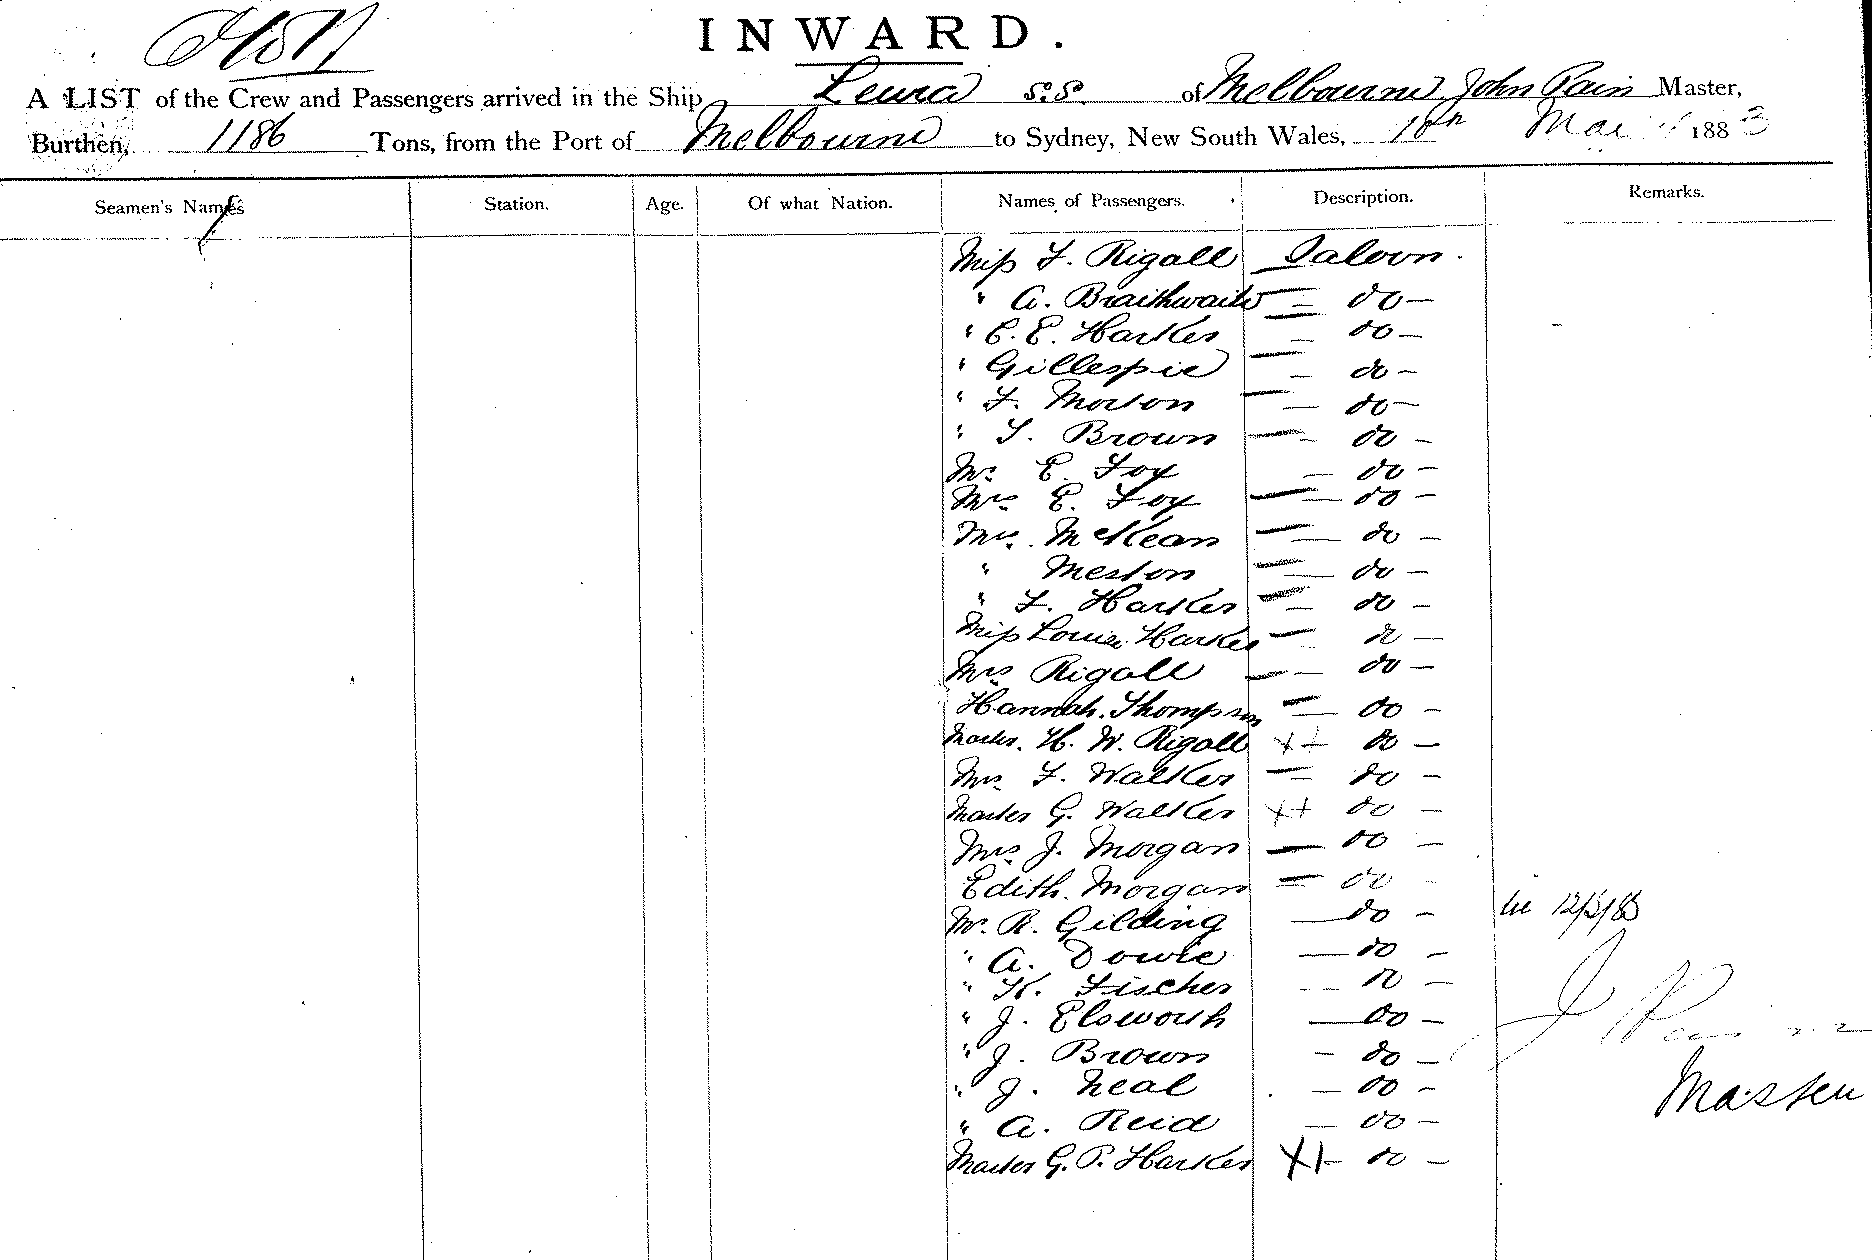 INWARD.
A LIST of the Crew and Passengers arrived in the Ship Leura s.s. of Melbourne, John Pain Master,
Burthen, 1186 Tons, from the Port of Melbourne to Sydney, New South Wales, 10th Mar 1883
Seamen's Names Station. Age. Of what Nation. Names of Passengers. Description. Remarks.
Miss F. Rigall Saloon.
" A. Braithwaite — do —
" E. E. Harkes — do —
" Gillespie — do —
" F. Morton — do —
" S. Brown — do —
Mr. E. Foy — do —
Mrs. E. Foy — do —
Mrs. McKean — do —
" Meston — do —
" F. Harkes — do —
Miss Louisa Harkes — do —
Mrs Rigall — do —
Hannah Thompson — do —
Master H. W. Rigall X+ do —
Mrs. F. Walker — do —
Master G. Walker X+ do —
Mrs J. Morgan — do —
Edith. Morgan — do —
Mr. R. Gilding — do —
" A. Dowie — do —
" K. Fischer — do —
" J. Elsworth — do —
" J. Brown — do —
" J. Neal — do —
" A. Reid — do —
Master G. P. Harkes X+ do —
12/3/83
J Pain
Master